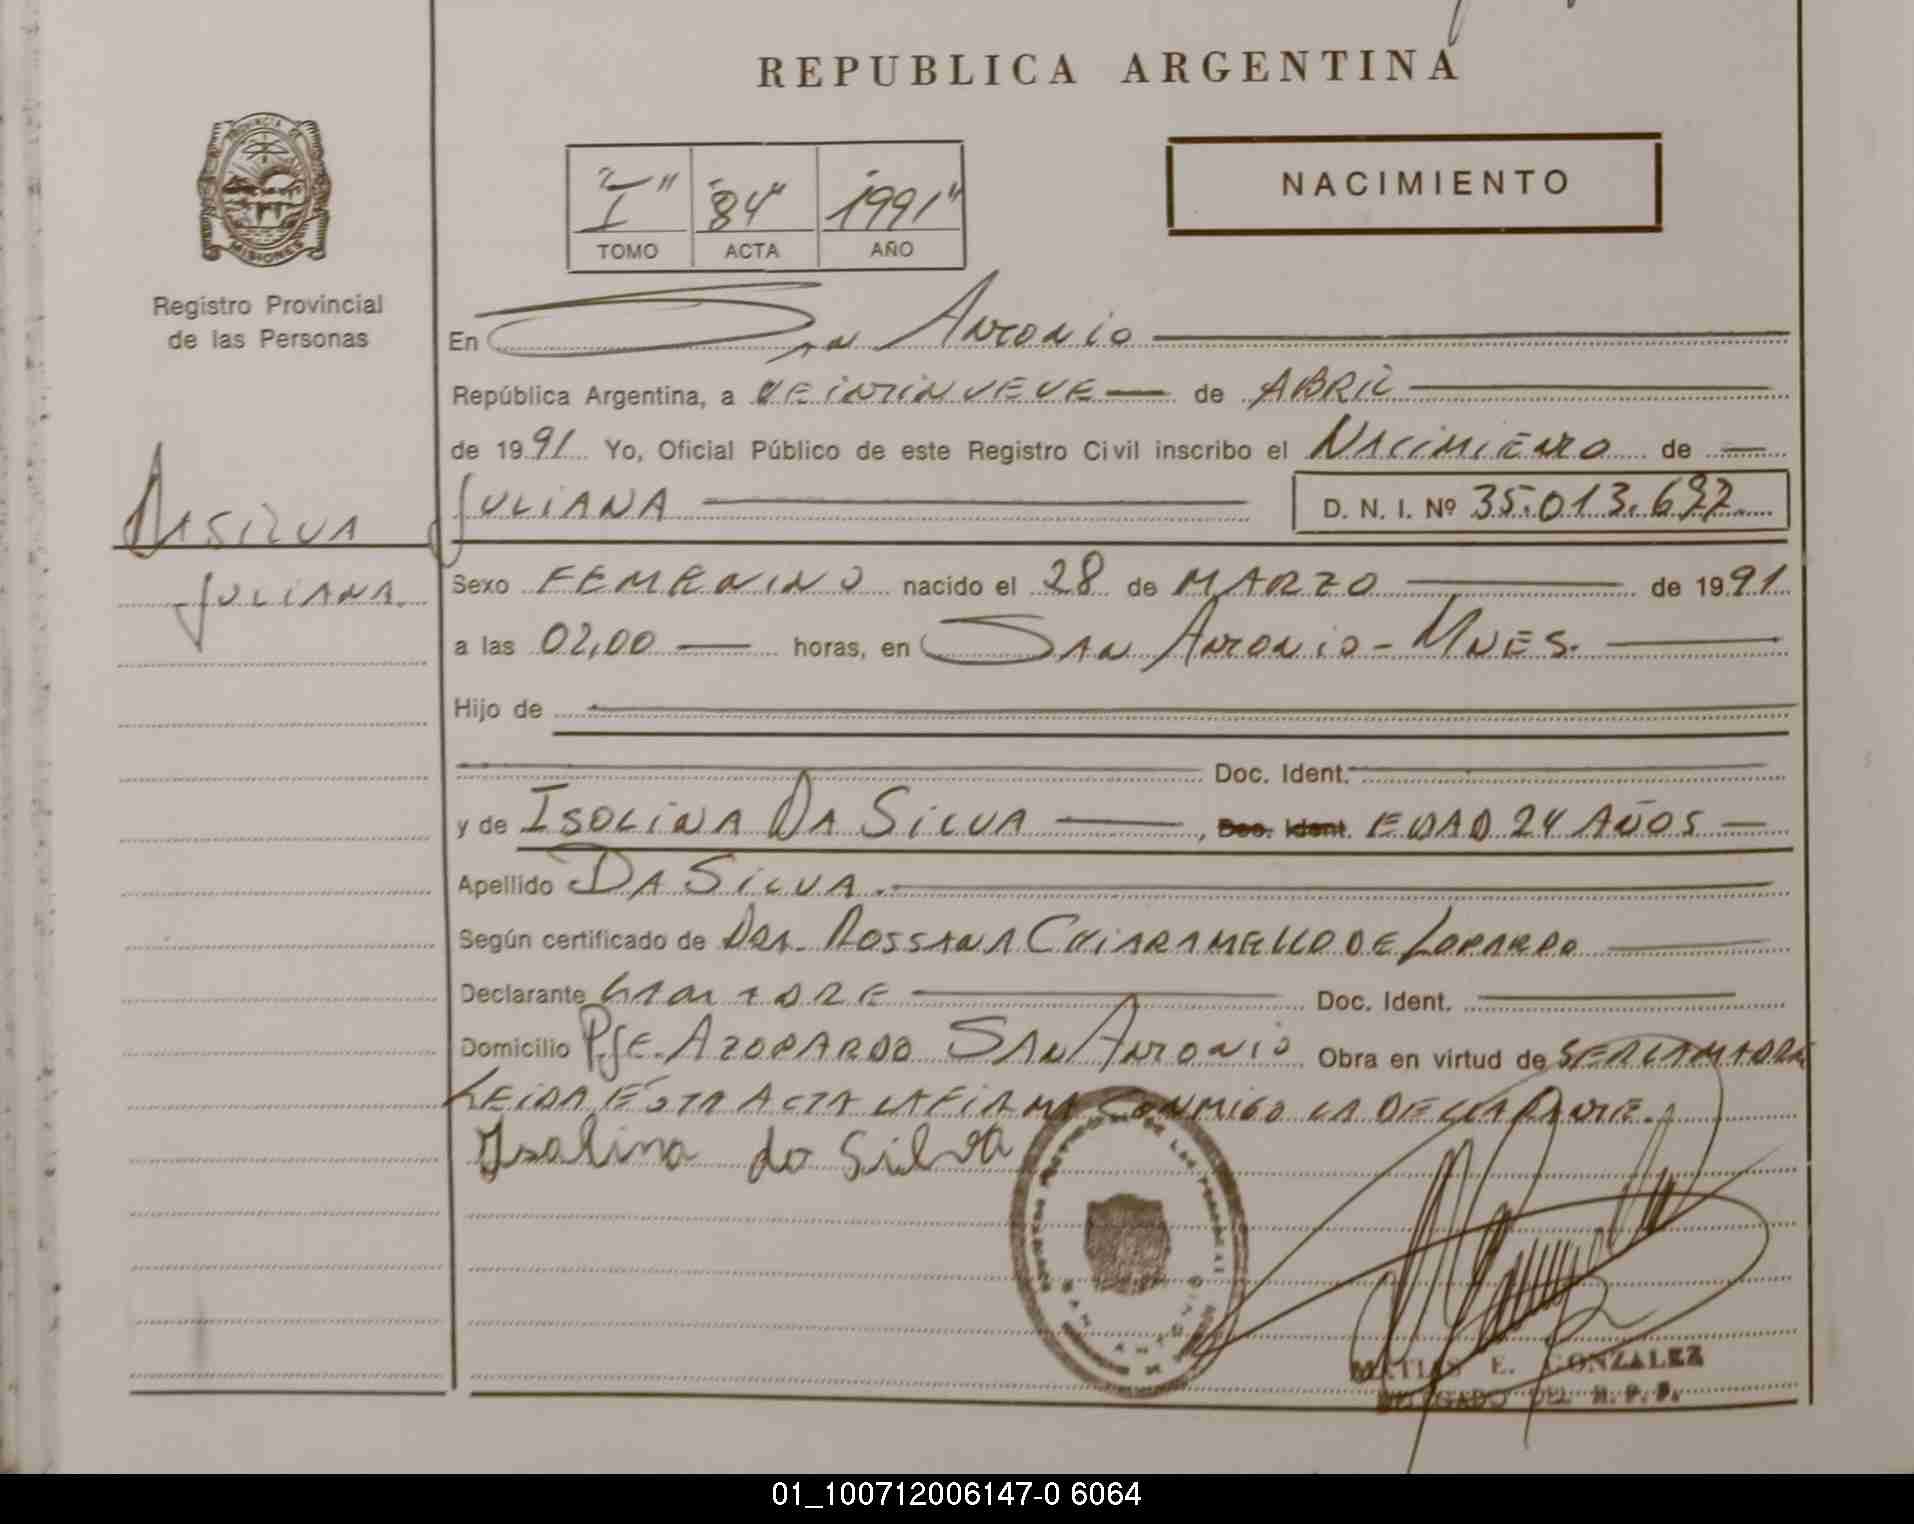 REPUBLICA ARGENTINA
PROVINCIA DE MISIONES
Registro Provincial
de las Personas
"I" "84" "1991"
TOMO ACTA AÑO
NACIMIENTO
En San Antonio
República Argentina, a VEINTINUEVE de ABRIL
de 1991 Yo, Oficial Público de este Registro Civil inscribo el NACIMIENTO de
DASILVA JULIANA D. N. I. Nº 35.013.6
JULIANA.
Sexo FEMENINO nacido el 28 de MARZO de 1991
a las 02,00 horas, en SAN ANTONIO - MNES.
Hijo de
Doc. Ident.
y de ISOLINA DA SILVA, Doc. Ident. EDAD 24 AÑOS
Apellido DA SILVA.
Según certificado de DRA. ROSSANA CHIARAMELLO DE LOPARDO
Declarante LA MADRE Doc. Ident.
Domicilio PJE. AZOPARDO SAN ANTONIO Obra en virtud de SER LA MADRE
LEIDA ESTA ACTA LA FIRMA CONMIGO LA DECLARANTE.
Isolina do Silva
MATIAS E. GONZALEZ
DELEGADO DEL R. P. P.
01_100712006147-0 6064